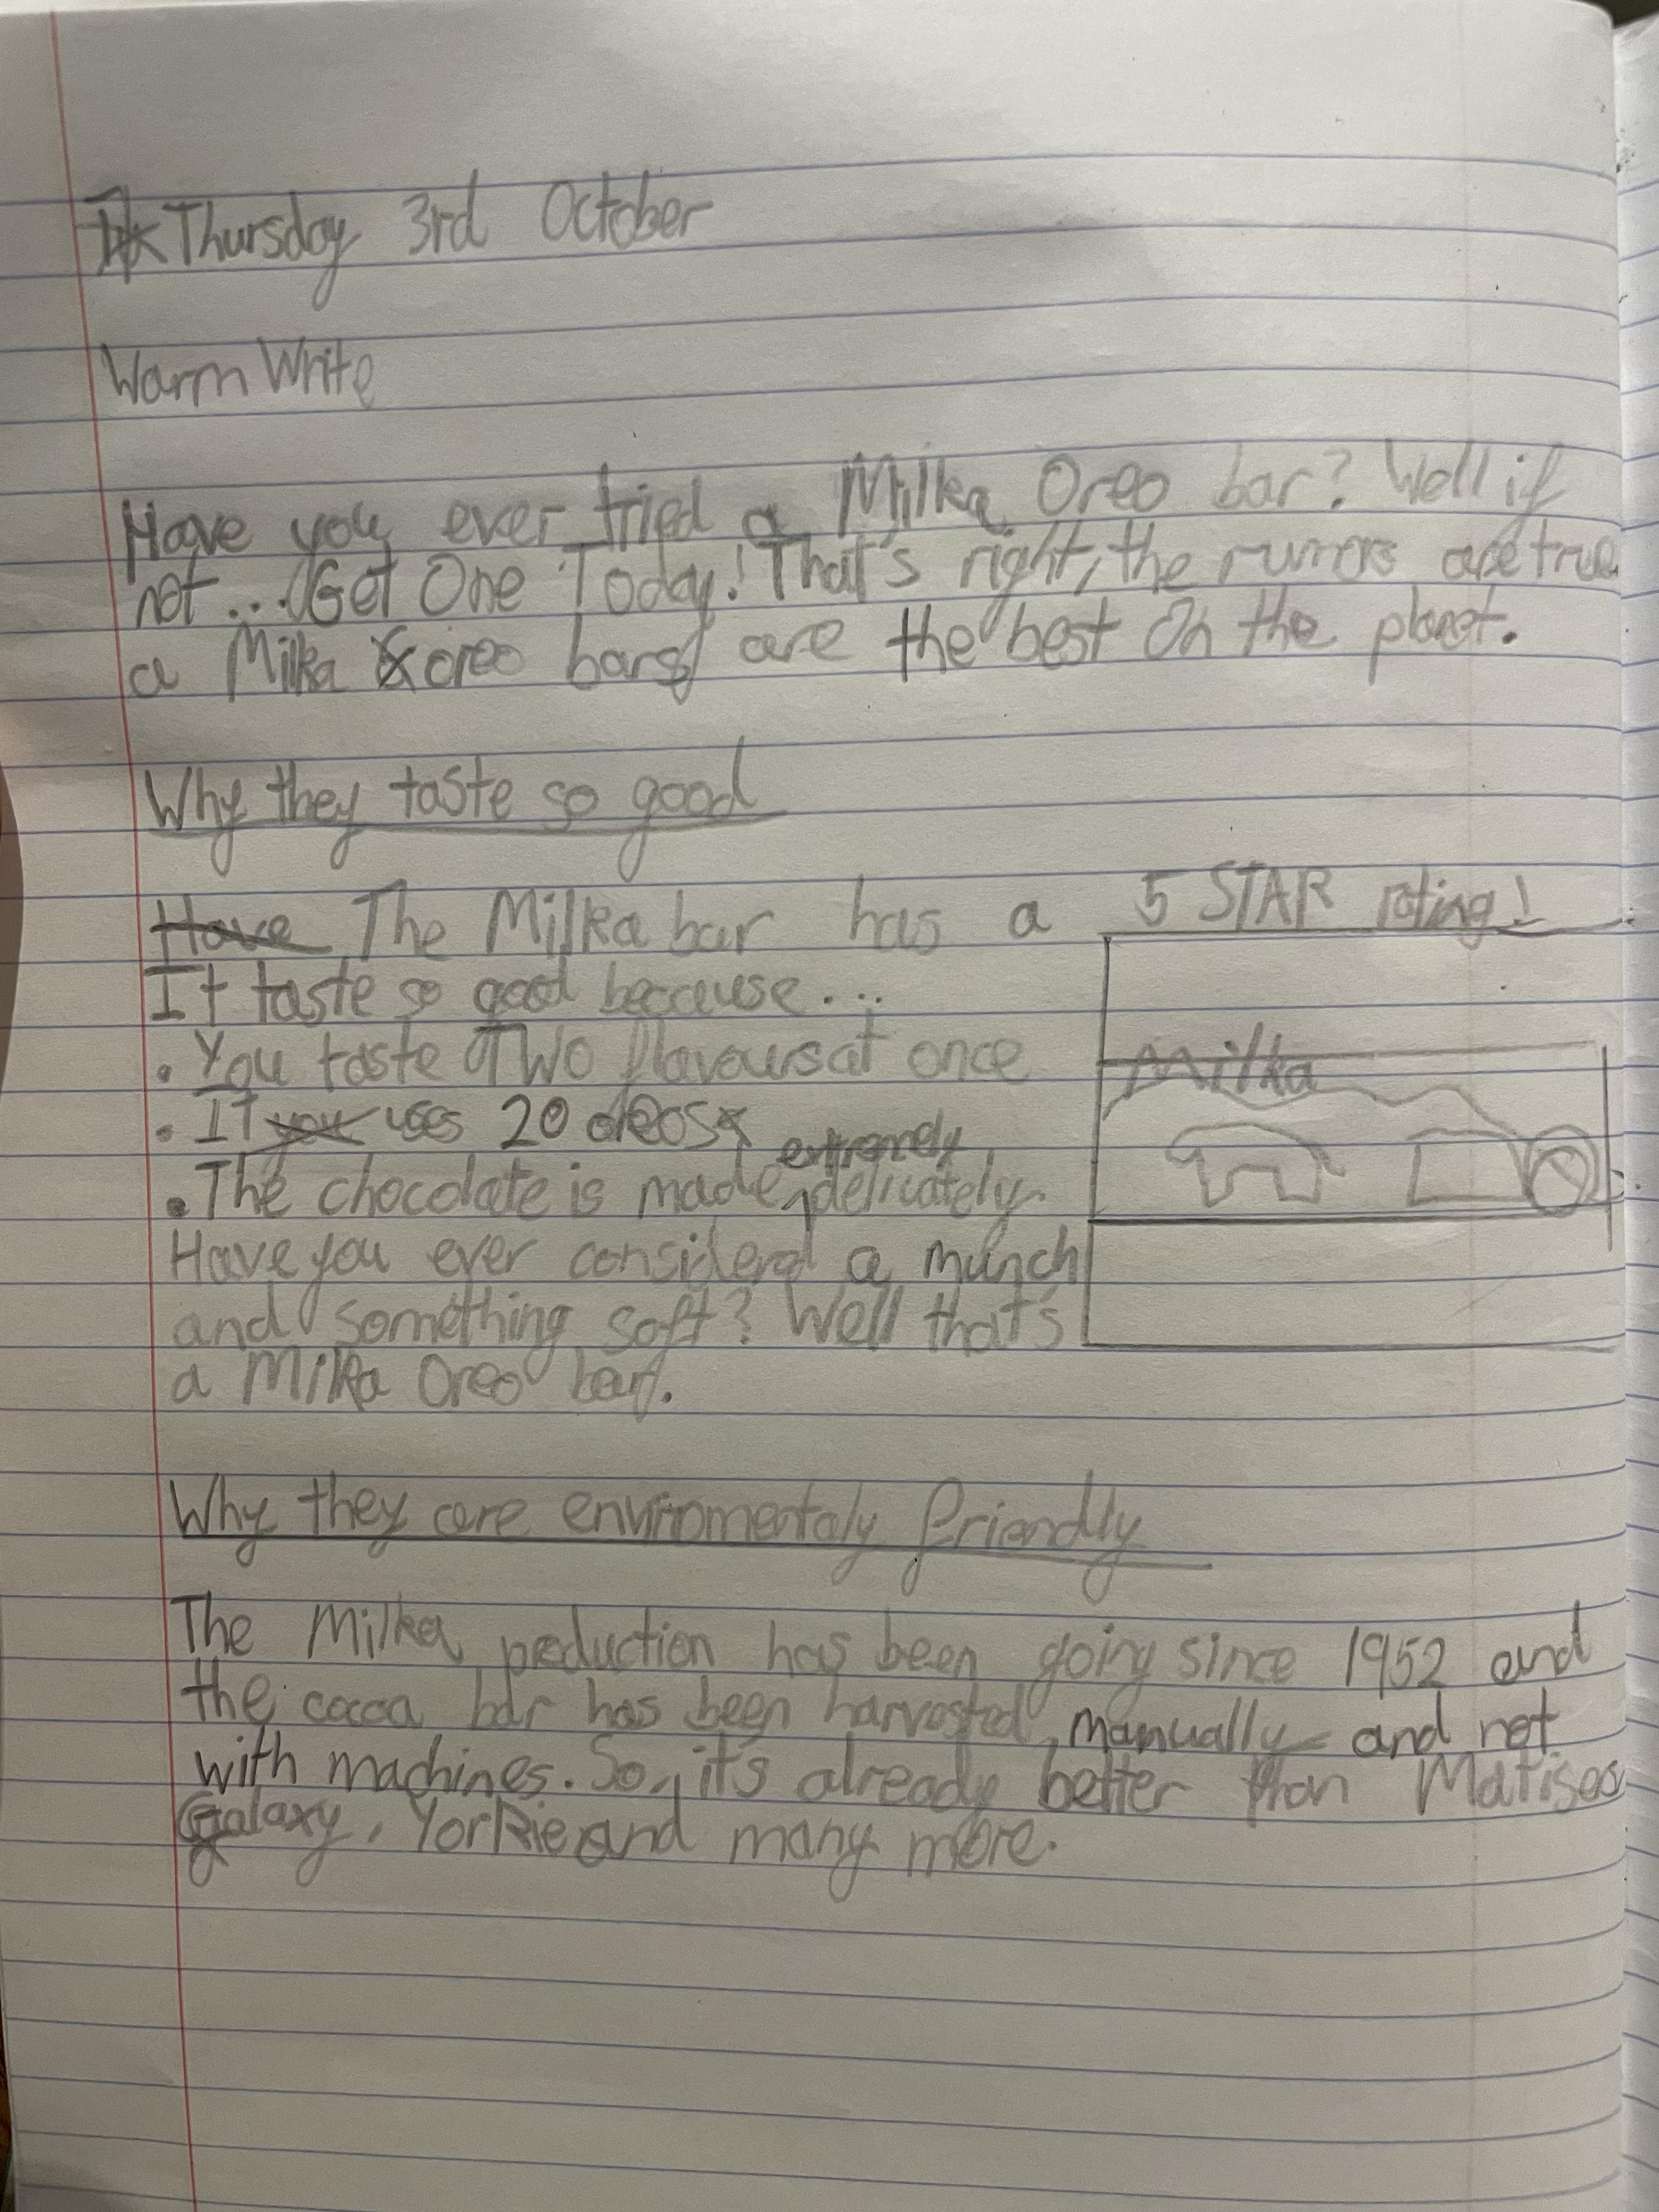 Thursday 3rd October
Warm Write
Have you ever tried a Milka Oreo bar? Well if
not... Get One Today! That's right, the rumors are true
a Milka oreo bars are the best On the planet.
Why they taste so good
Have The Milka bar has a 5 STAR rating!
It taste so good because...
• You taste TWO flavours at once
• It you uses 20 oreos
• The chocolate is made extremely delicately.
Have you ever considerd a munch
and something soft? Well that's
a Milka Oreo bar.
Milka
Why they are enviromentaly friendly
The Milka production has been going since 1952 and
the cocoa bar has been harvested manually and not
with machines. So, it's already better than
Galaxy, Yorkie and many more.